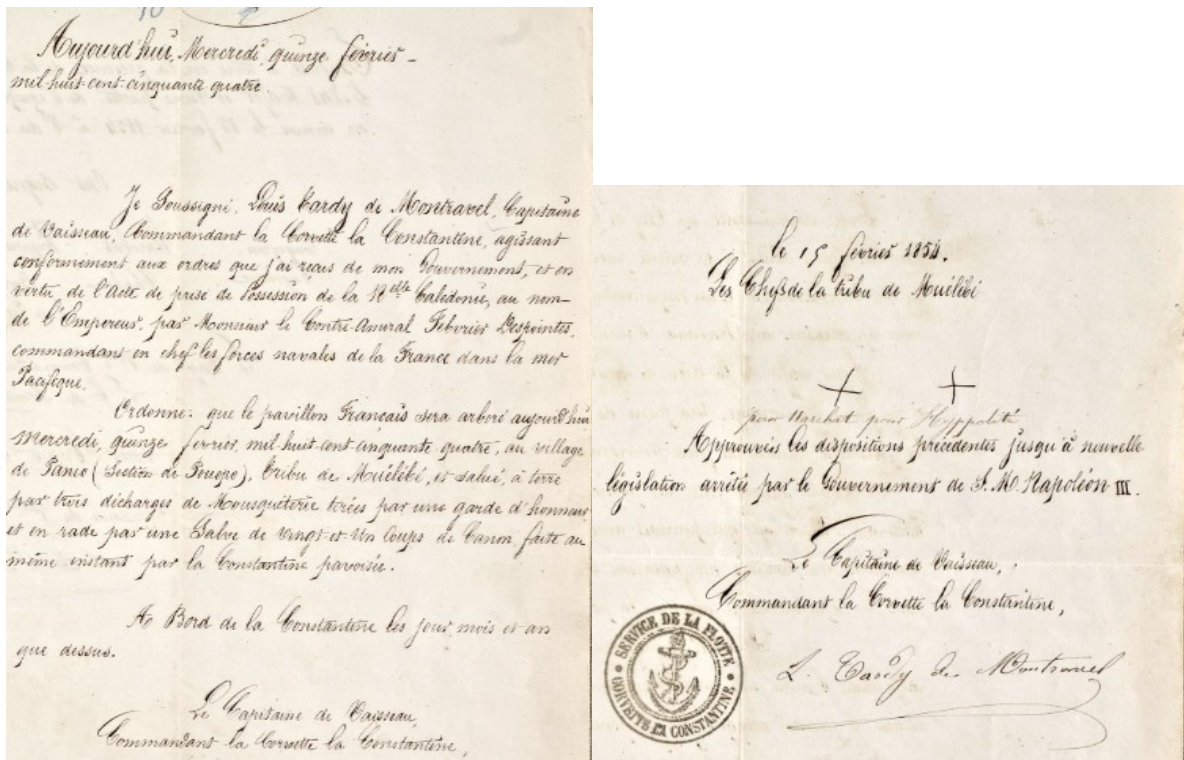 Aujourd'hui, Mercredi, quinze février –
mil-huit-cent-cinquante quatre
Je Soussigné, Louis Tardy de Montravel, Capitaine
de Vaisseau, Commandant la Corvette la Constantine, agissant
conformément aux ordres que j'ai reçus de mon Gouvernement, et en
vertu de l'Acte de prise de Possession de la Nelle Calédonie, au nom-
de l'Empereur, par Monsieur le Contre-Amiral Febvrier Despointes,
commandant en chef les forces navales de la France dans la mer
Pacifique.
Ordonne: que le pavillon Francais sera arboré aujourd'hui
Mercredi, quinze février, mil huit-cent-cinquante quatre, au village
de Panié (Section de Pouepo), Tribu de Muélébé, et salué, à terre
par trois décharges de Mousquèterie tirées par une garde d'honneur
et en rade par une Salve de vingt-et-Un Coups de Canon faite au
même instant par la Constantine pavoisée.
A Bord de la Constantine les jour, mois et an
que dessus.
Le Capitaine de Vaisseau,
Commandant la Corvette la Constantine,
le 15 février 1854.
Les Chefs de la tribu de Muélébé
pour pour Hyppolité
Approuvés les dispositions précédentes jusqu'à nouvelle
législation arrêtée par le Gouvernement de S. M. Napoléon III.
Le Capitaine de Vaisseau,
Commandant la Corvette la Constantine,
SERVICE DE LA FLOTTE
CORVETTE LA CONSTANTINE
L. Tardy de Montravel